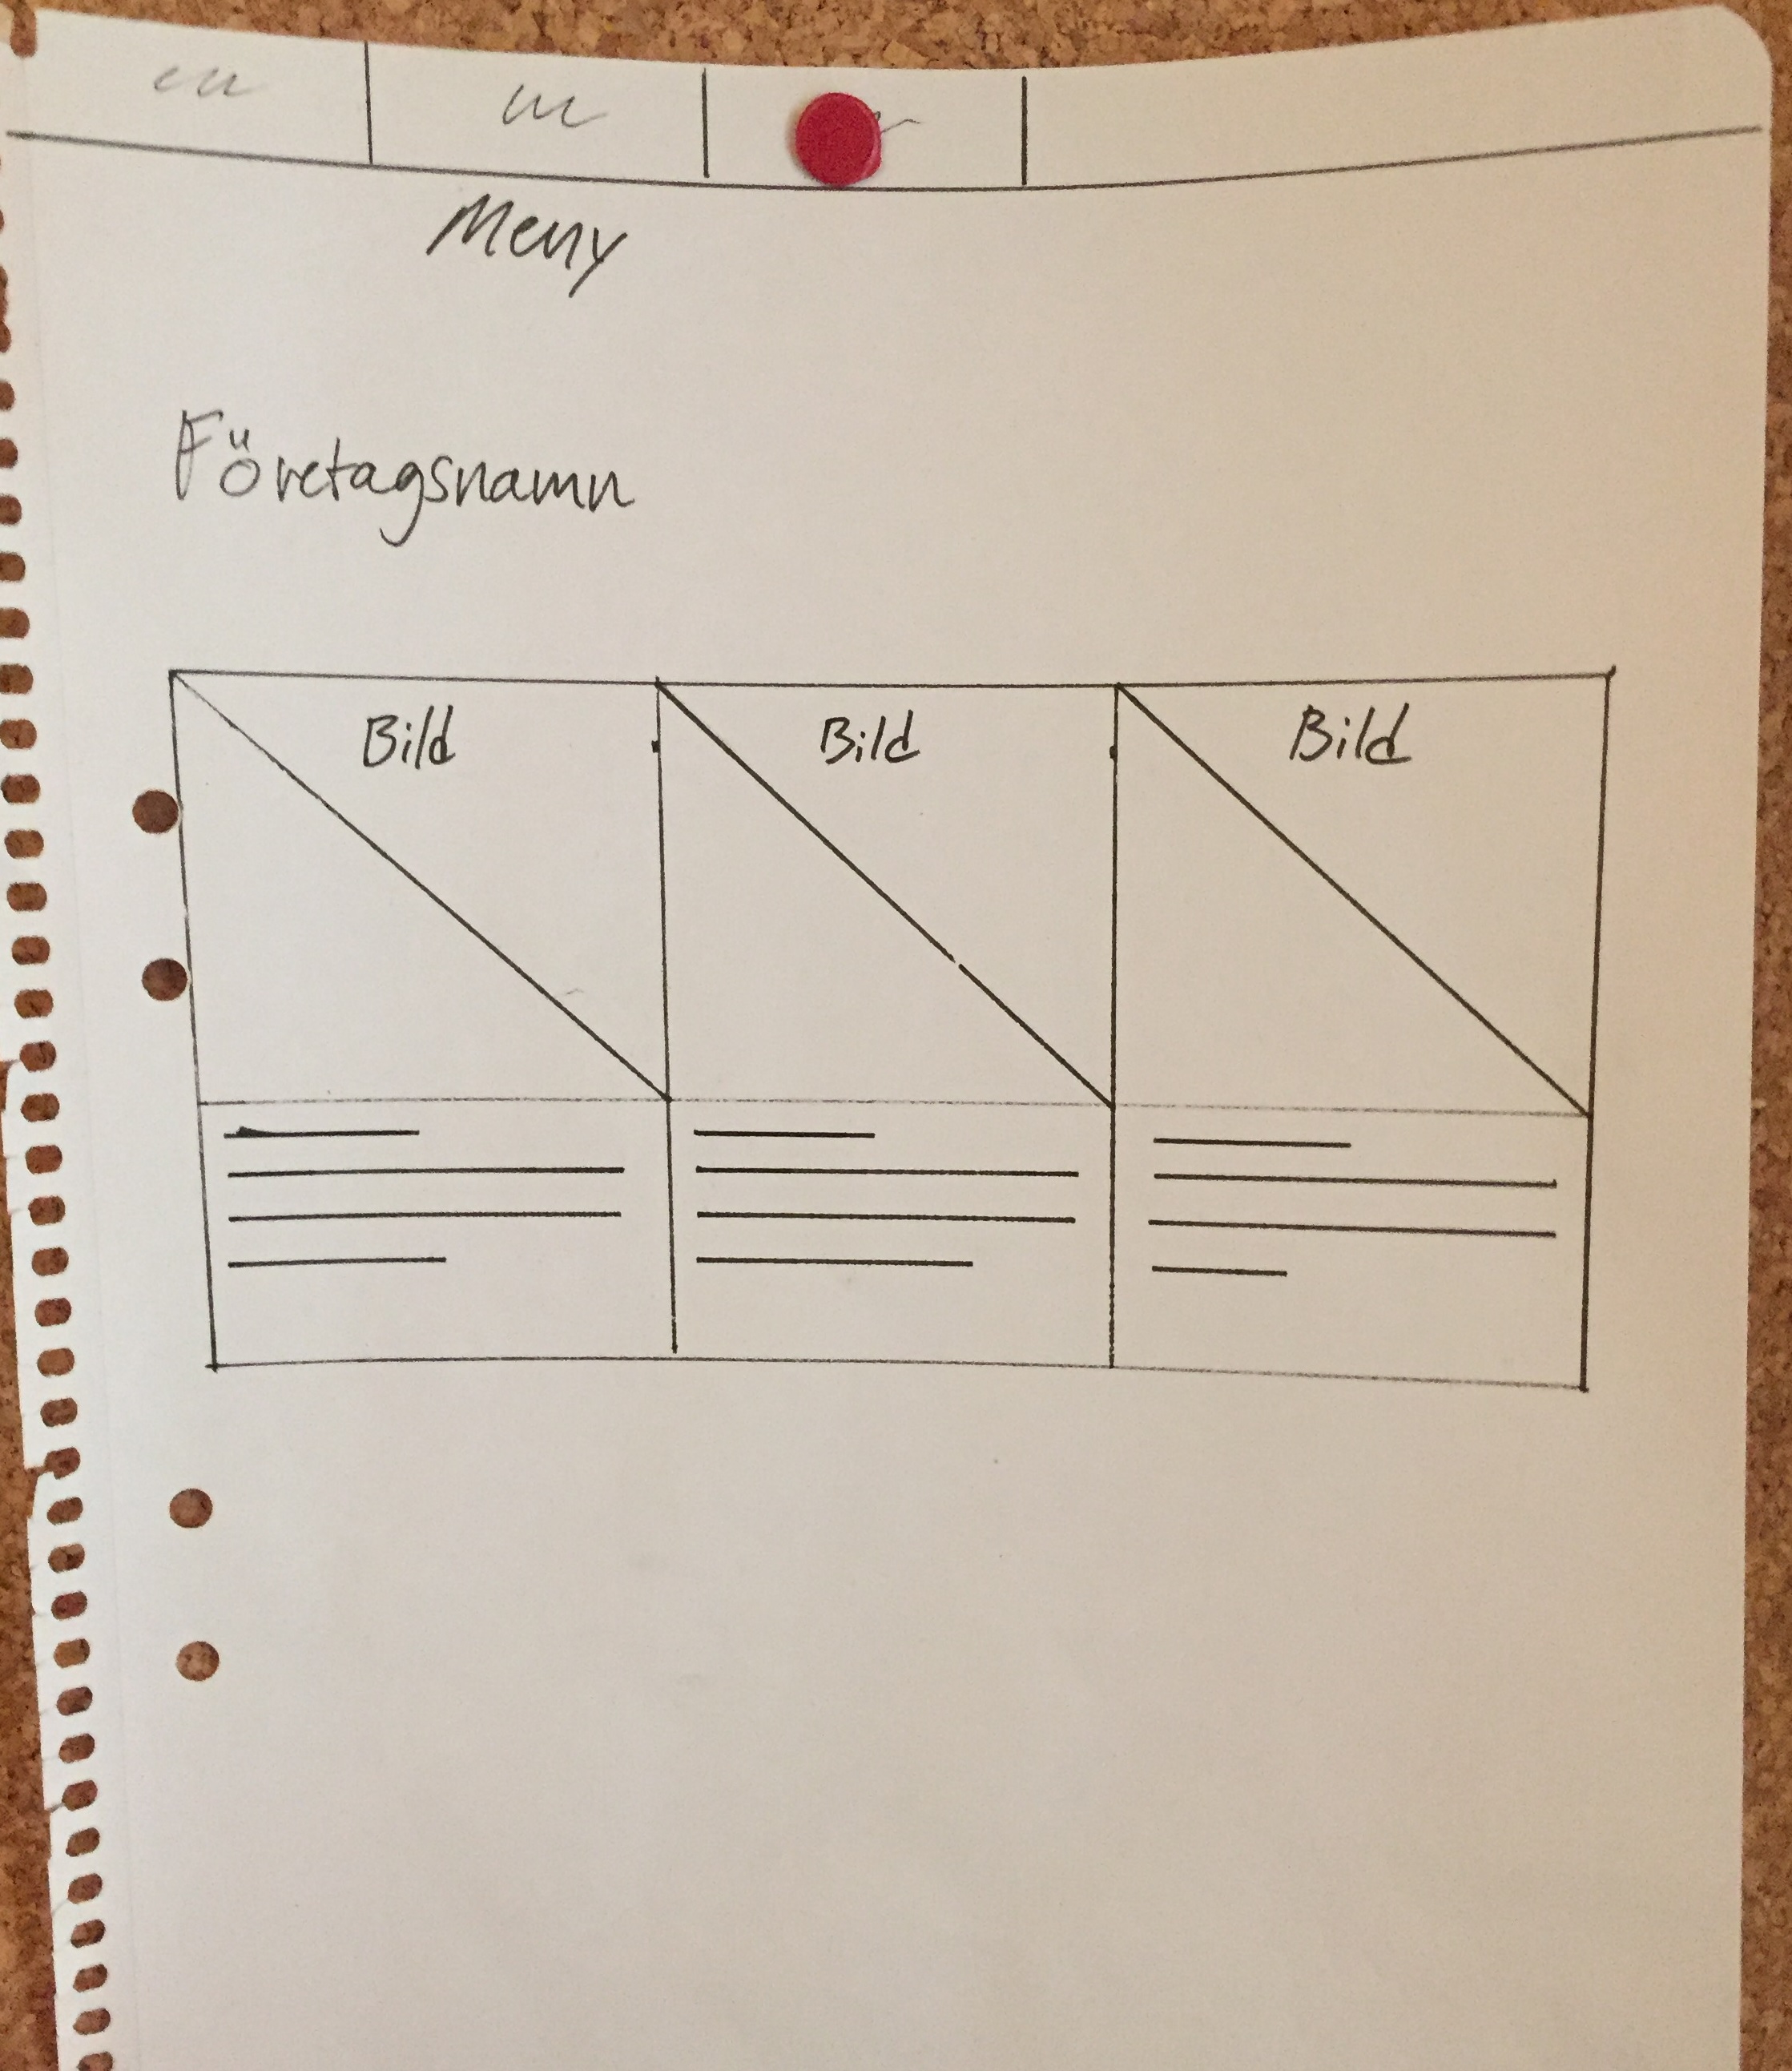 Meny
Företagsnamn
Bild Bild Bild